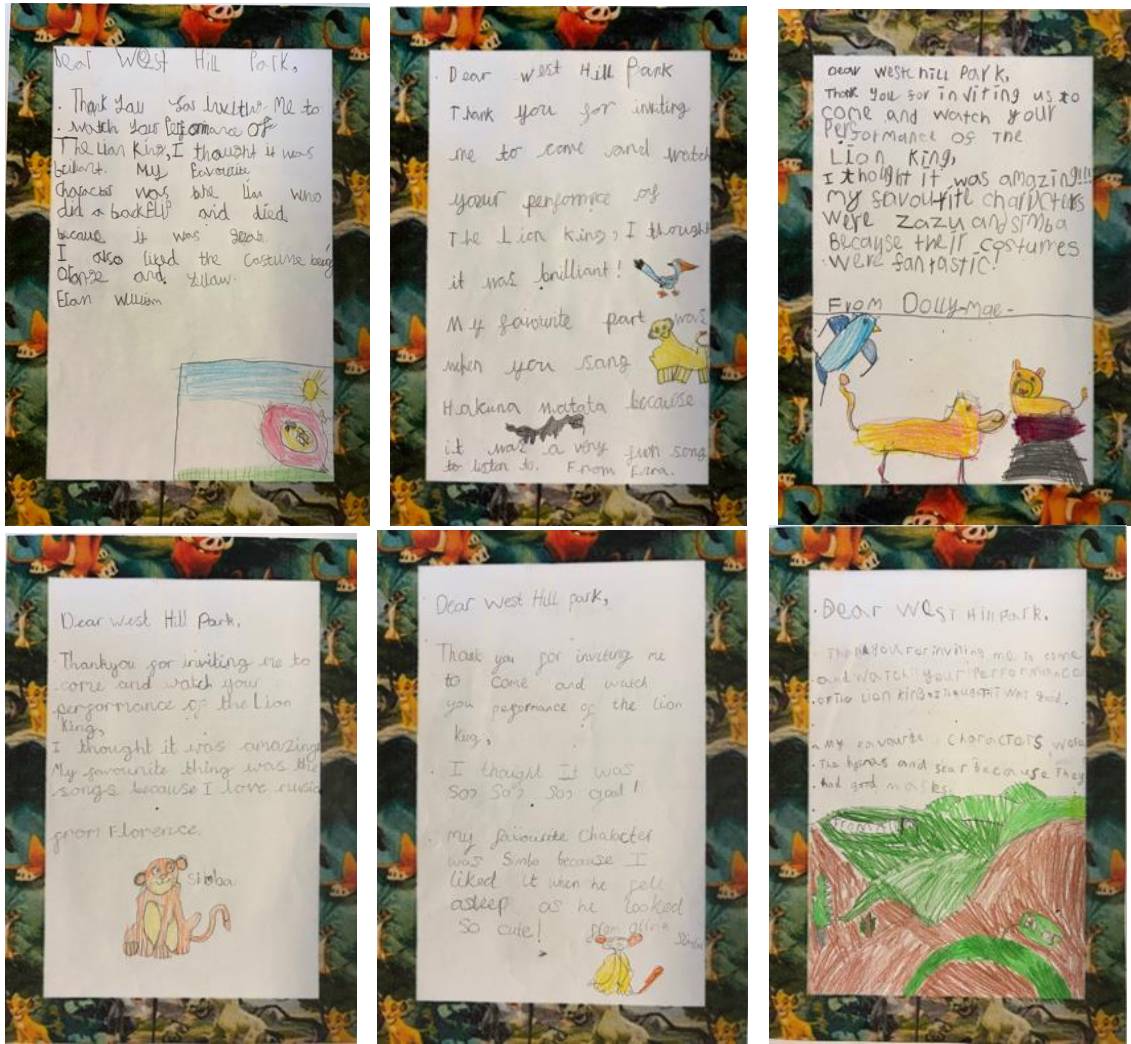 Dear West Hill Park,
Thank you for inviting me to
watch your performance of
The Lion King, I thought it was
brilliant. My favourite
character was the lion who
did a backflip and died
because it was
I also liked the costume being
orange and yellow.
William
Dear west Hill Park
Thank you for inviting
me to come and watch
your performance of
The Lion King, I thought
it was brilliant!
My favourite part was
when you sang
Hakuna matata because
it was a very fun song
to listen to. From Ezra.
Dear west hill Park,
Thank you for inviting us to
come and watch your
Performance of The
Lion King,
I thought it was amazing!!!!
my favourite characters
were Zazu and simba
Because their costumes
were fantastic!
From Dolly-mae-
Dear west Hill Park,
Thankyou for inviting me to
come and watch your
performance of the Lion
King,
I thought it was amazing
My favourite thing was the
songs because I love music
from Florence.
Simba
Dear West Hill park,
Thank you for inviting me
to come and watch
you performance of the Lion
King,
I thought It was
So, So, So, good!
my favourite Character
was Simba because I
liked it when he fell
asleep as he looked
So cute!
Simba
Dear West Hill Park.
Thank you for inviting me to come
and watch your Performance
of the Lion King I thought it was good.
My favourite characters were
The hyenas and scar because They
had good masks.